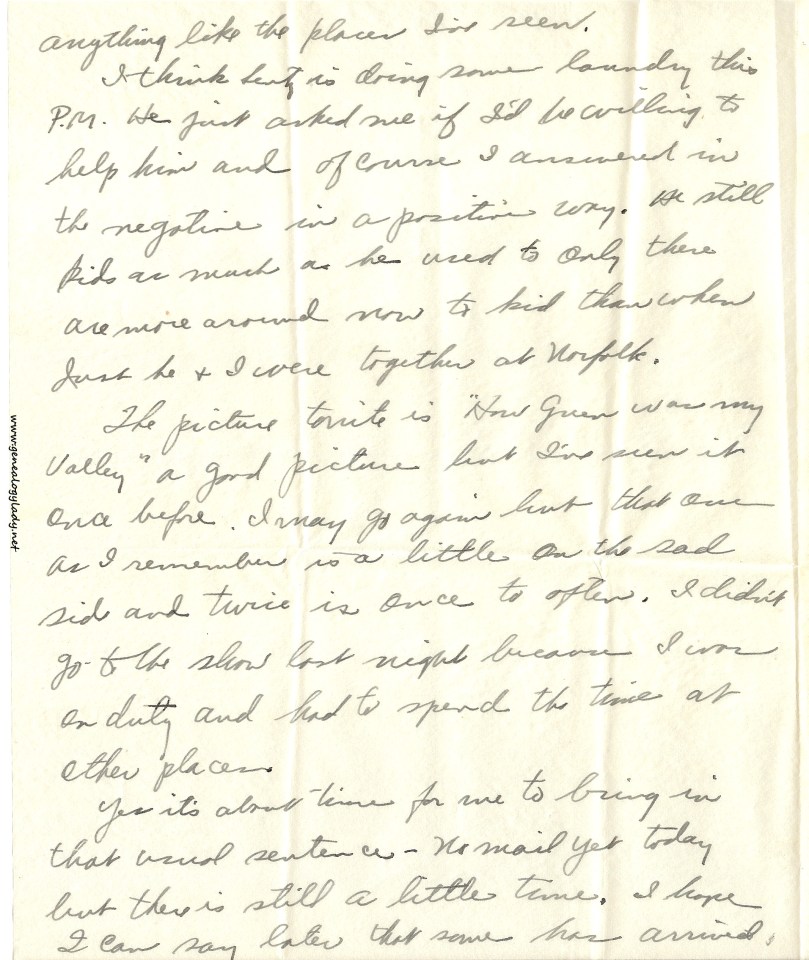 anything like the places I've seen.
I think is doing some laundry this
P.M. He just asked me if I'd be willing to
help him and of course I answered in
the negative in a positive way. He still
kids as much as he used to only there
are more around now to kid than when
Just he & I were together at Norfolk.
The picture tonite is "How Green was my
Valley" a good picture but I've seen it
once before. I may go again but that one
as I remember is a little on the sad
side and twice is once to often. I didn't
go to the show last night because I was
on duty and had to spend the time at
other places.
Yes it's about time for me to bring in
that usual sentence - No mail yet today
but there is still a little time. I hope
I can say later that some has arrived.
www.genealogylady.net